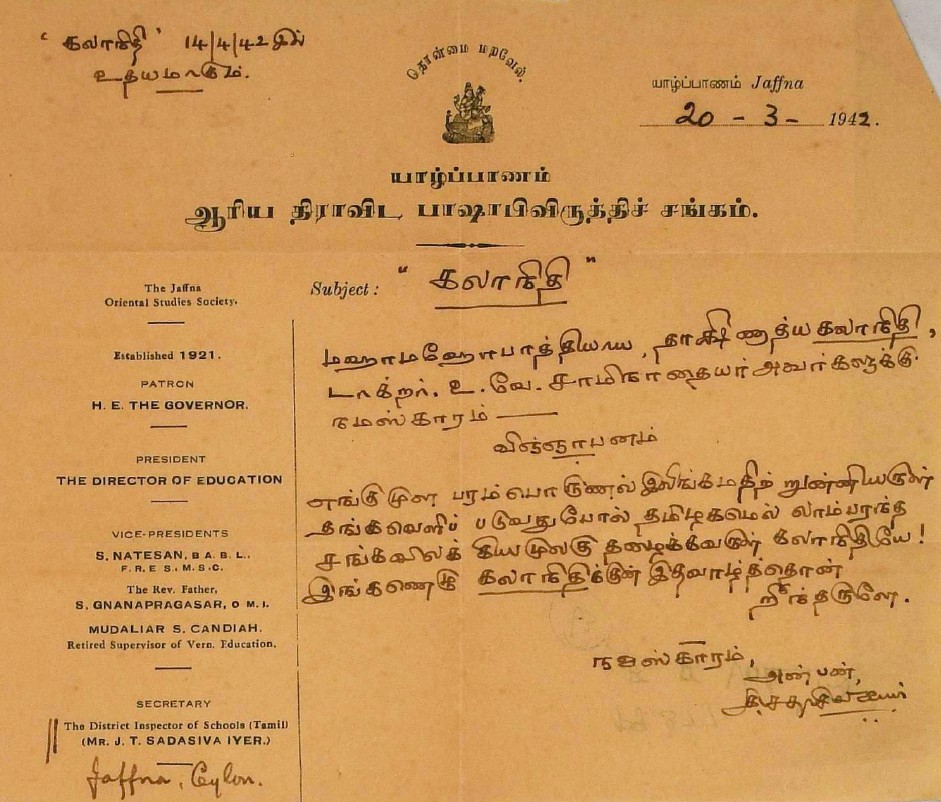 " கலாநிதி " 14/4/42 இல்
உதயமாகும்.
தொன்மை மறவேல்.
யாழ்ப்பாணம் Jaffna
20 - 3 - 1942.
யாழ்ப்பாணம்
ஆரிய திராவிட பாஷாபிவிருத்திச் சங்கம்.
The Jaffna
Oriental Studies Society.
Established 1921.
PATRON
H. E. THE GOVERNOR.
PRESIDENT
THE DIRECTOR OF EDUCATION
VICE-PRESIDENTS
S. NATESAN, B A. B. L.,
F. R. E S., M. S. C.
The Rev. Father,
S. GNANAPRAGASAR, O M. I.
MUDALIAR S. CANDIAH.
Retired Supervisor of Vern. Education.
SECRETARY
The District Inspector of Schools (Tamil)
(MR. J. T. SADASIVA IYER.)
Jaffna, Ceylon.
Subject : " கலாநிதி "
மஹாமஹோபாத்தியாய, தாக்ஷிணாத்ய கலாநிதி,
டாக்டர். உ. வே. சாமிநாதையர் அவர்களுக்கு
நமஸ்காரம் —
விஞ்ஞாபனம்
எங்குமுள பரம்பொருணல் இலிங்கமதிற் றுன்னியருள்
தங்கவெளிப் படுவதுபோல் தமிழகமெல் லாம்பரந்த
சங்கவிலக் கியமுலகு தழைக்கவருள் கலாநிதியே!
இங்கணெமது கலாநிதிக்குன் இதவாழ்த்தொன்
றீந்தருளே.
நமஸ்காரம்,
அன்பன்,